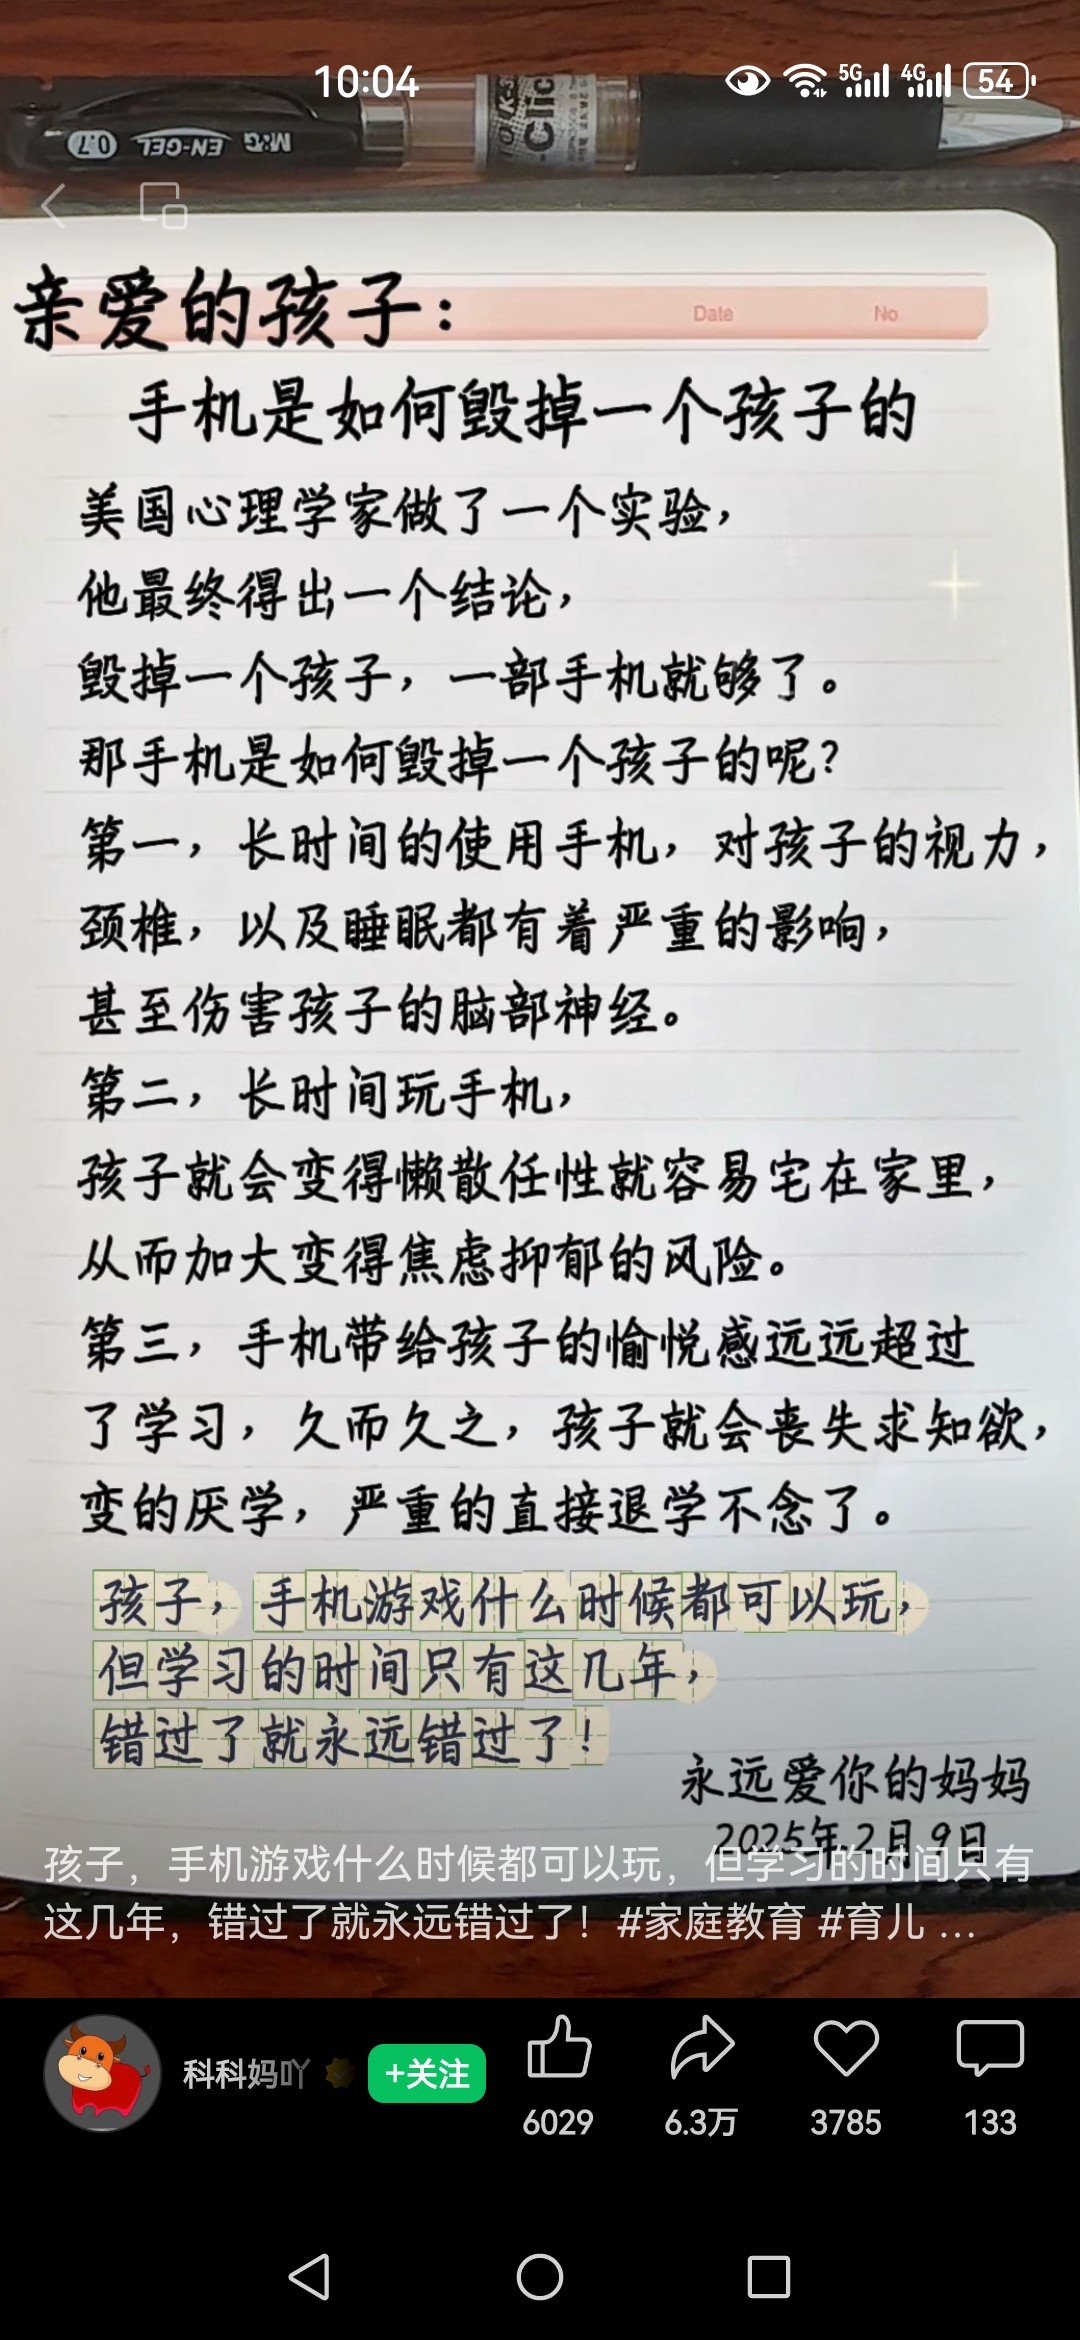 10:04
5G
4G
54
0.7
EN-GEL
M&G
K-3
Clic
亲爱的孩子：
Date
No
手机是如何毁掉一个孩子的
美国心理学家做了一个实验，
他最终得出一个结论，
毁掉一个孩子，一部手机就够了。
那手机是如何毁掉一个孩子的呢？
第一，长时间的使用手机，对孩子的视力，
颈椎，以及睡眠都有着严重的影响，
甚至伤害孩子的脑部神经。
第二，长时间玩手机，
孩子就会变得懒散任性就容易宅在家里，
从而加大变得焦虑抑郁的风险。
第三，手机带给孩子的愉悦感远远超过
了学习，久而久之，孩子就会丧失求知欲，
变的厌学，严重的直接退学不念了。
孩子，手机游戏什么时候都可以玩，
但学习的时间只有这几年，
错过了就永远错过了！
永远爱你的妈妈
2025年2月9日
孩子，手机游戏什么时候都可以玩，但学习的时间只有
这几年，错过了就永远错过了！#家庭教育 #育儿 ...
科科妈吖
+关注
6029
6.3万
3785
133